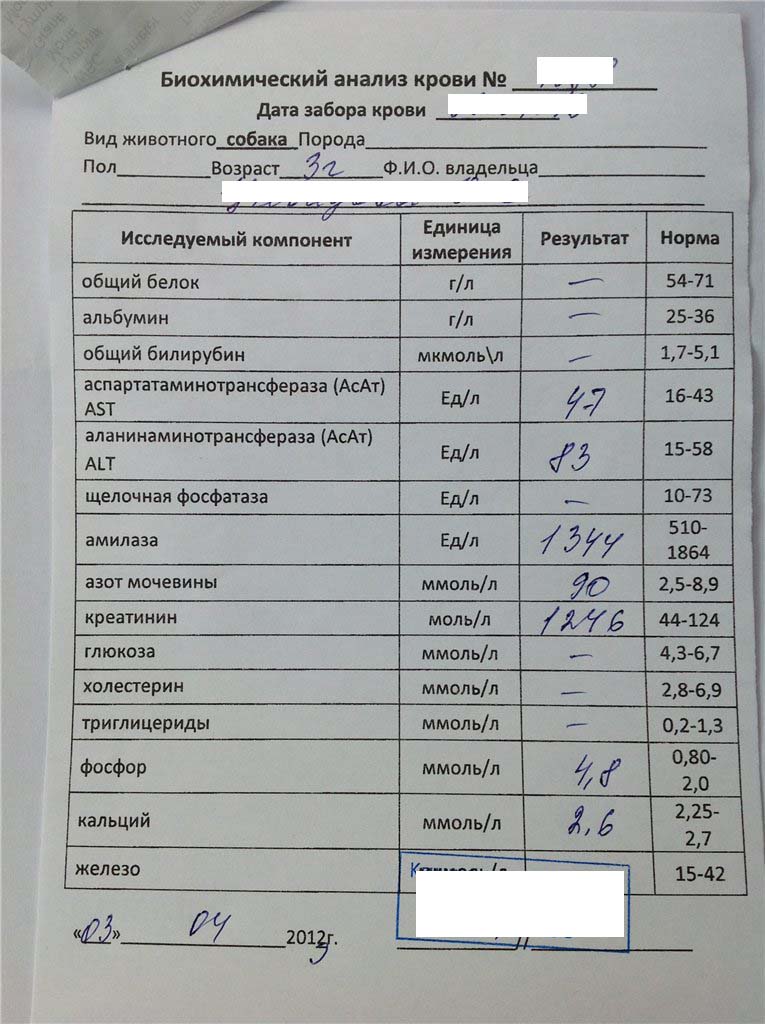 Биохимический анализ крови №
Дата забора крови
Вид животного собака Порода
Пол Возраст 3г Ф.И.О. владельца
Исследуемый компонент Единица измерения Результат Норма
общий белок г/л — 54-71
альбумин г/л — 25-36
общий билирубин мкмоль\л — 1,7-5,1
аспартатаминотрансфераза (АсАт) AST Ед/л 47 16-43
аланинаминотрансфераза (АсАт) ALT Ед/л 83 15-58
щелочная фосфатаза Ед/л — 10-73
амилаза Ед/л 1344 510-1864
азот мочевины ммоль/л 90 2,5-8,9
креатинин моль/л 1246 44-124
глюкоза ммоль/л — 4,3-6,7
холестерин ммоль/л — 2,8-6,9
триглицериды ммоль/л — 0,2-1,3
фосфор ммоль/л 4,8 0,80-2,0
кальций ммоль/л 2,6 2,25-2,7
железо 15-42
«03» 04 2013г.